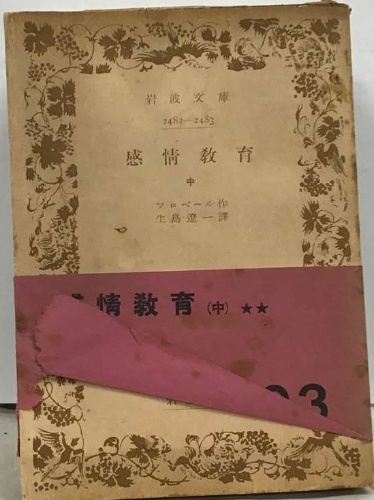 岩波文庫
2482—2483
感情教育
中
フロベール作
生島遼一譯
情教育(中)★★
3